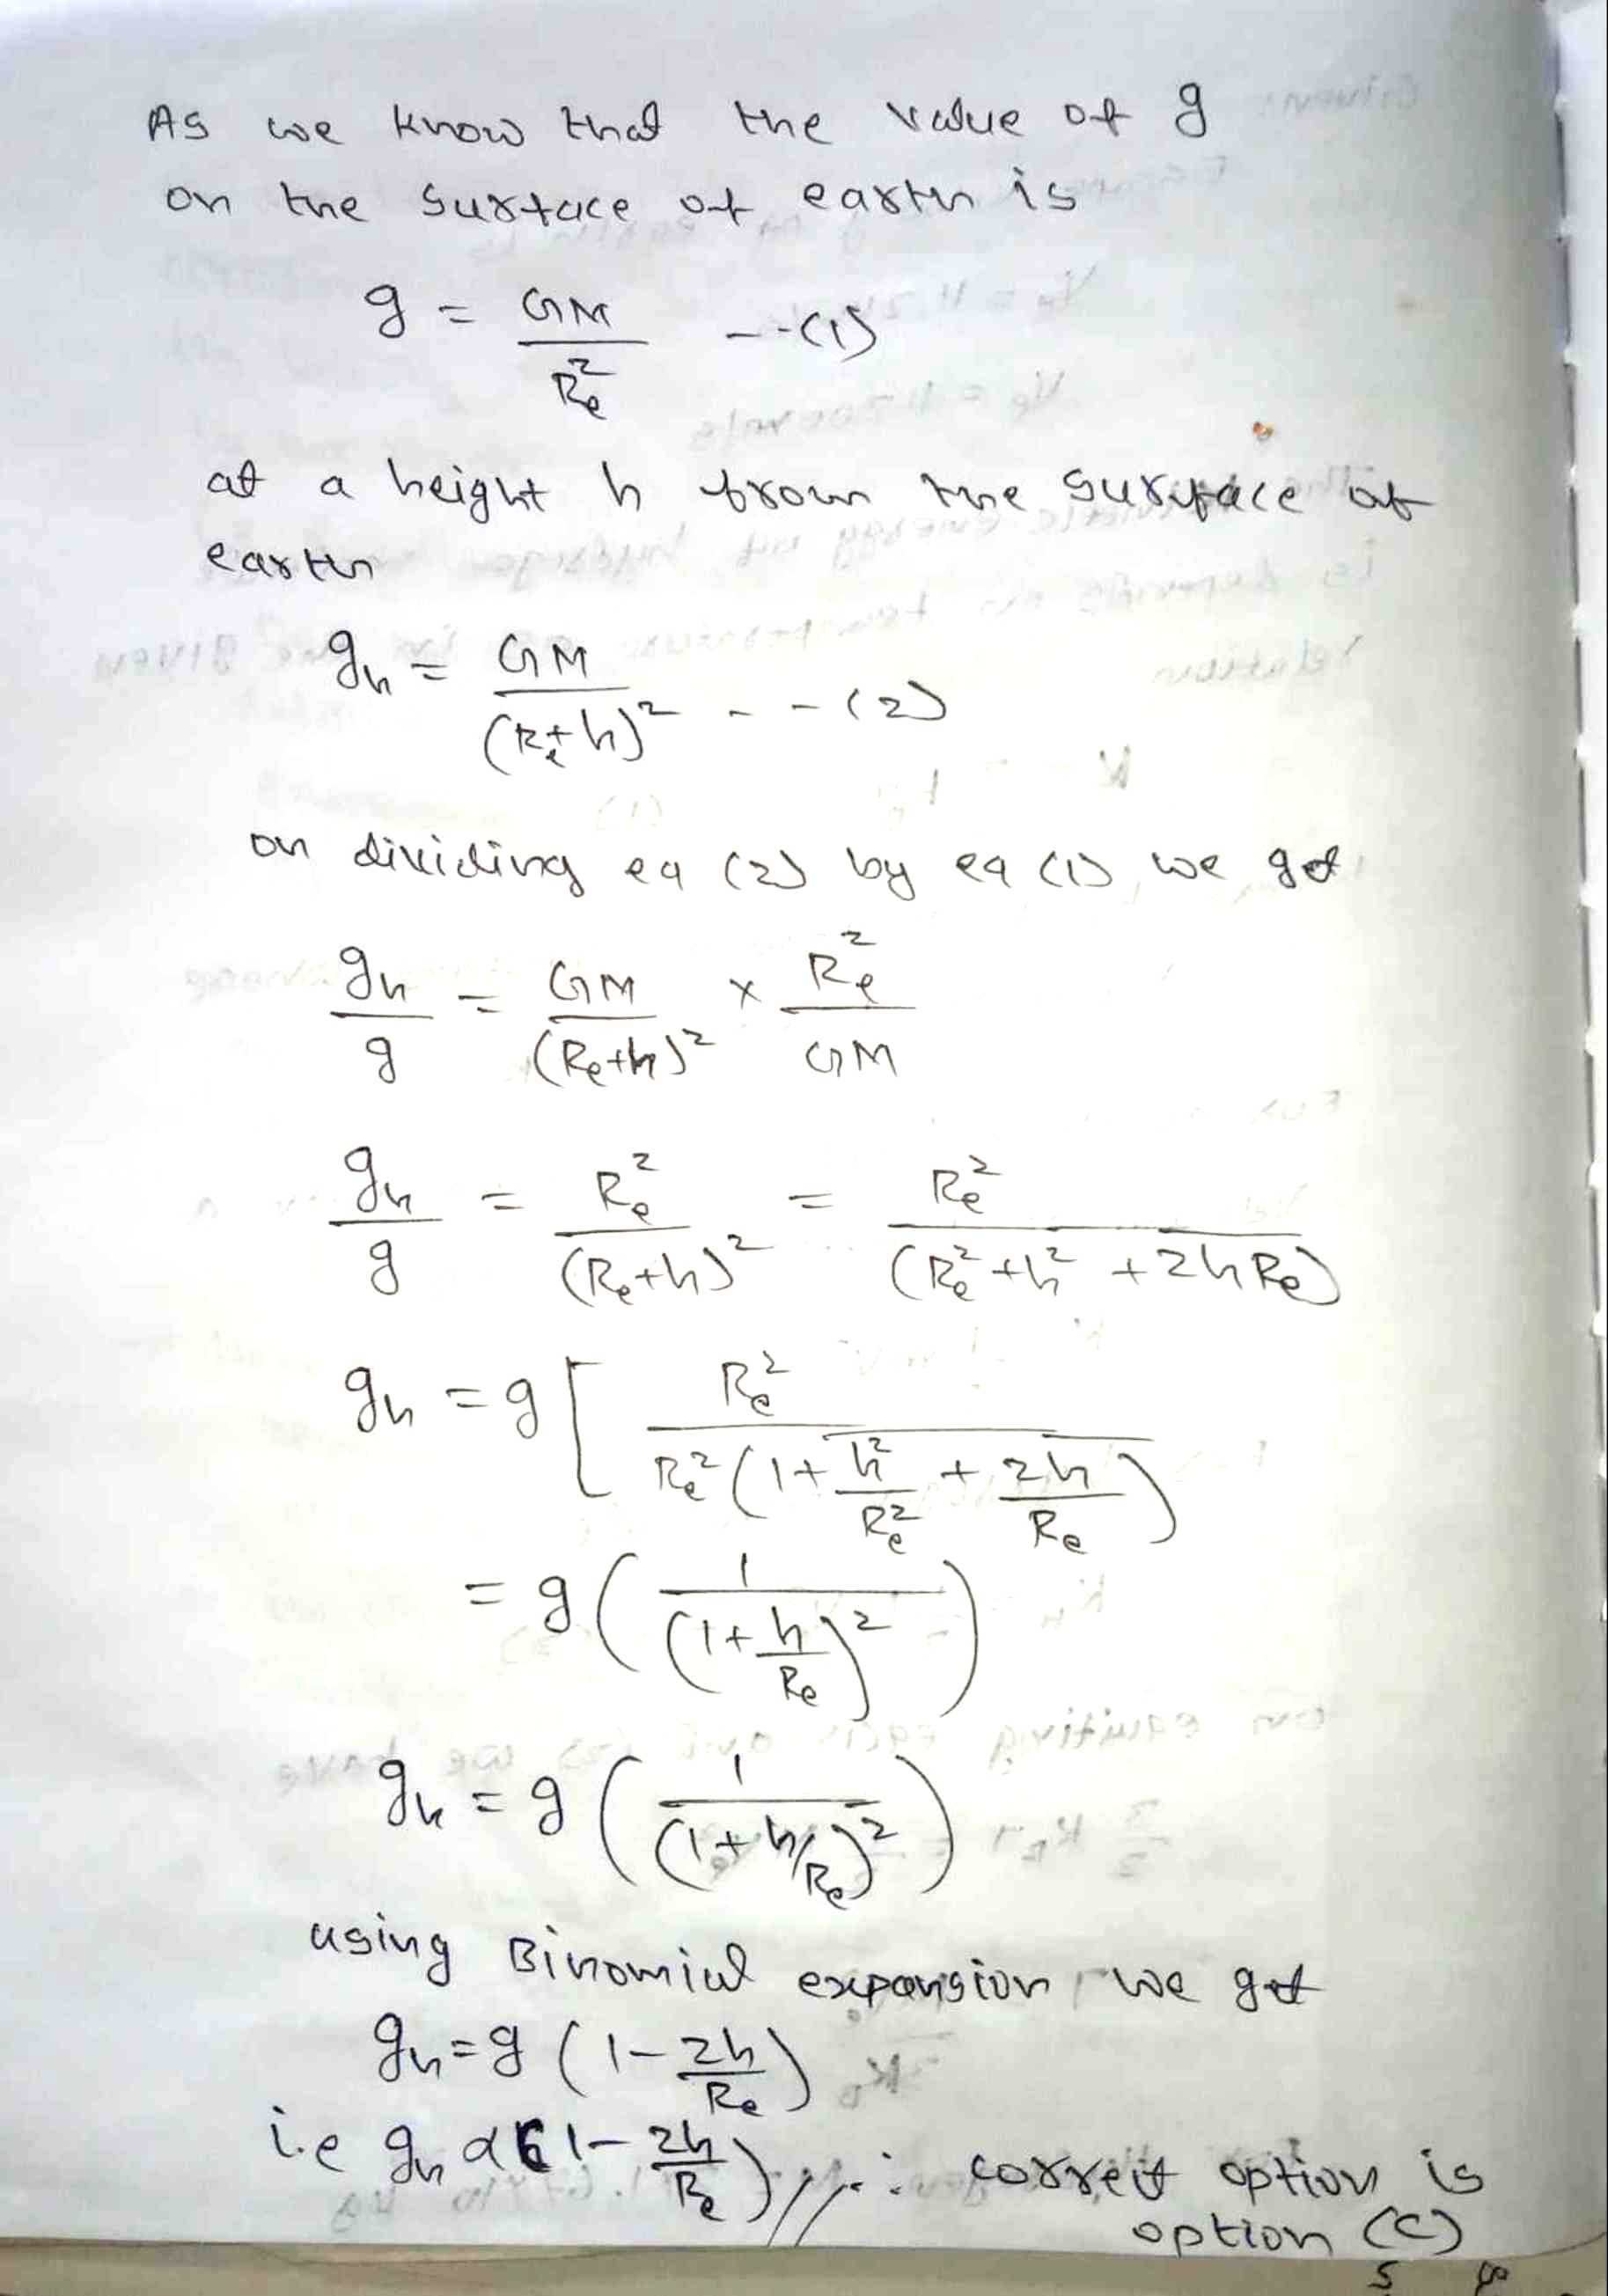 As we know that the value of g
on the surface of earth is
g = GM / Re² --(1)
at a height h from the surface of
earth
gh = GM / (Re+h)² - - -(2)
on dividing eq (2) by eq (1) we get
gh / g = GM / (Re+h)² × Re² / GM
gh / g = Re² / (Re+h)² = Re² / (Re²+h²+2hRe)
gh = g [ Re² / Re²(1+ h²/Re² + 2h/Re)
= g ( 1 / (1+ h/Re)² )
gh = g ( 1 / (1+h/Re)² )
using Binomial expansion, we get
gh=g (1- 2h/Re)
i.e gh α (1- 2h/Re)// ∴ correct option is
option (C)